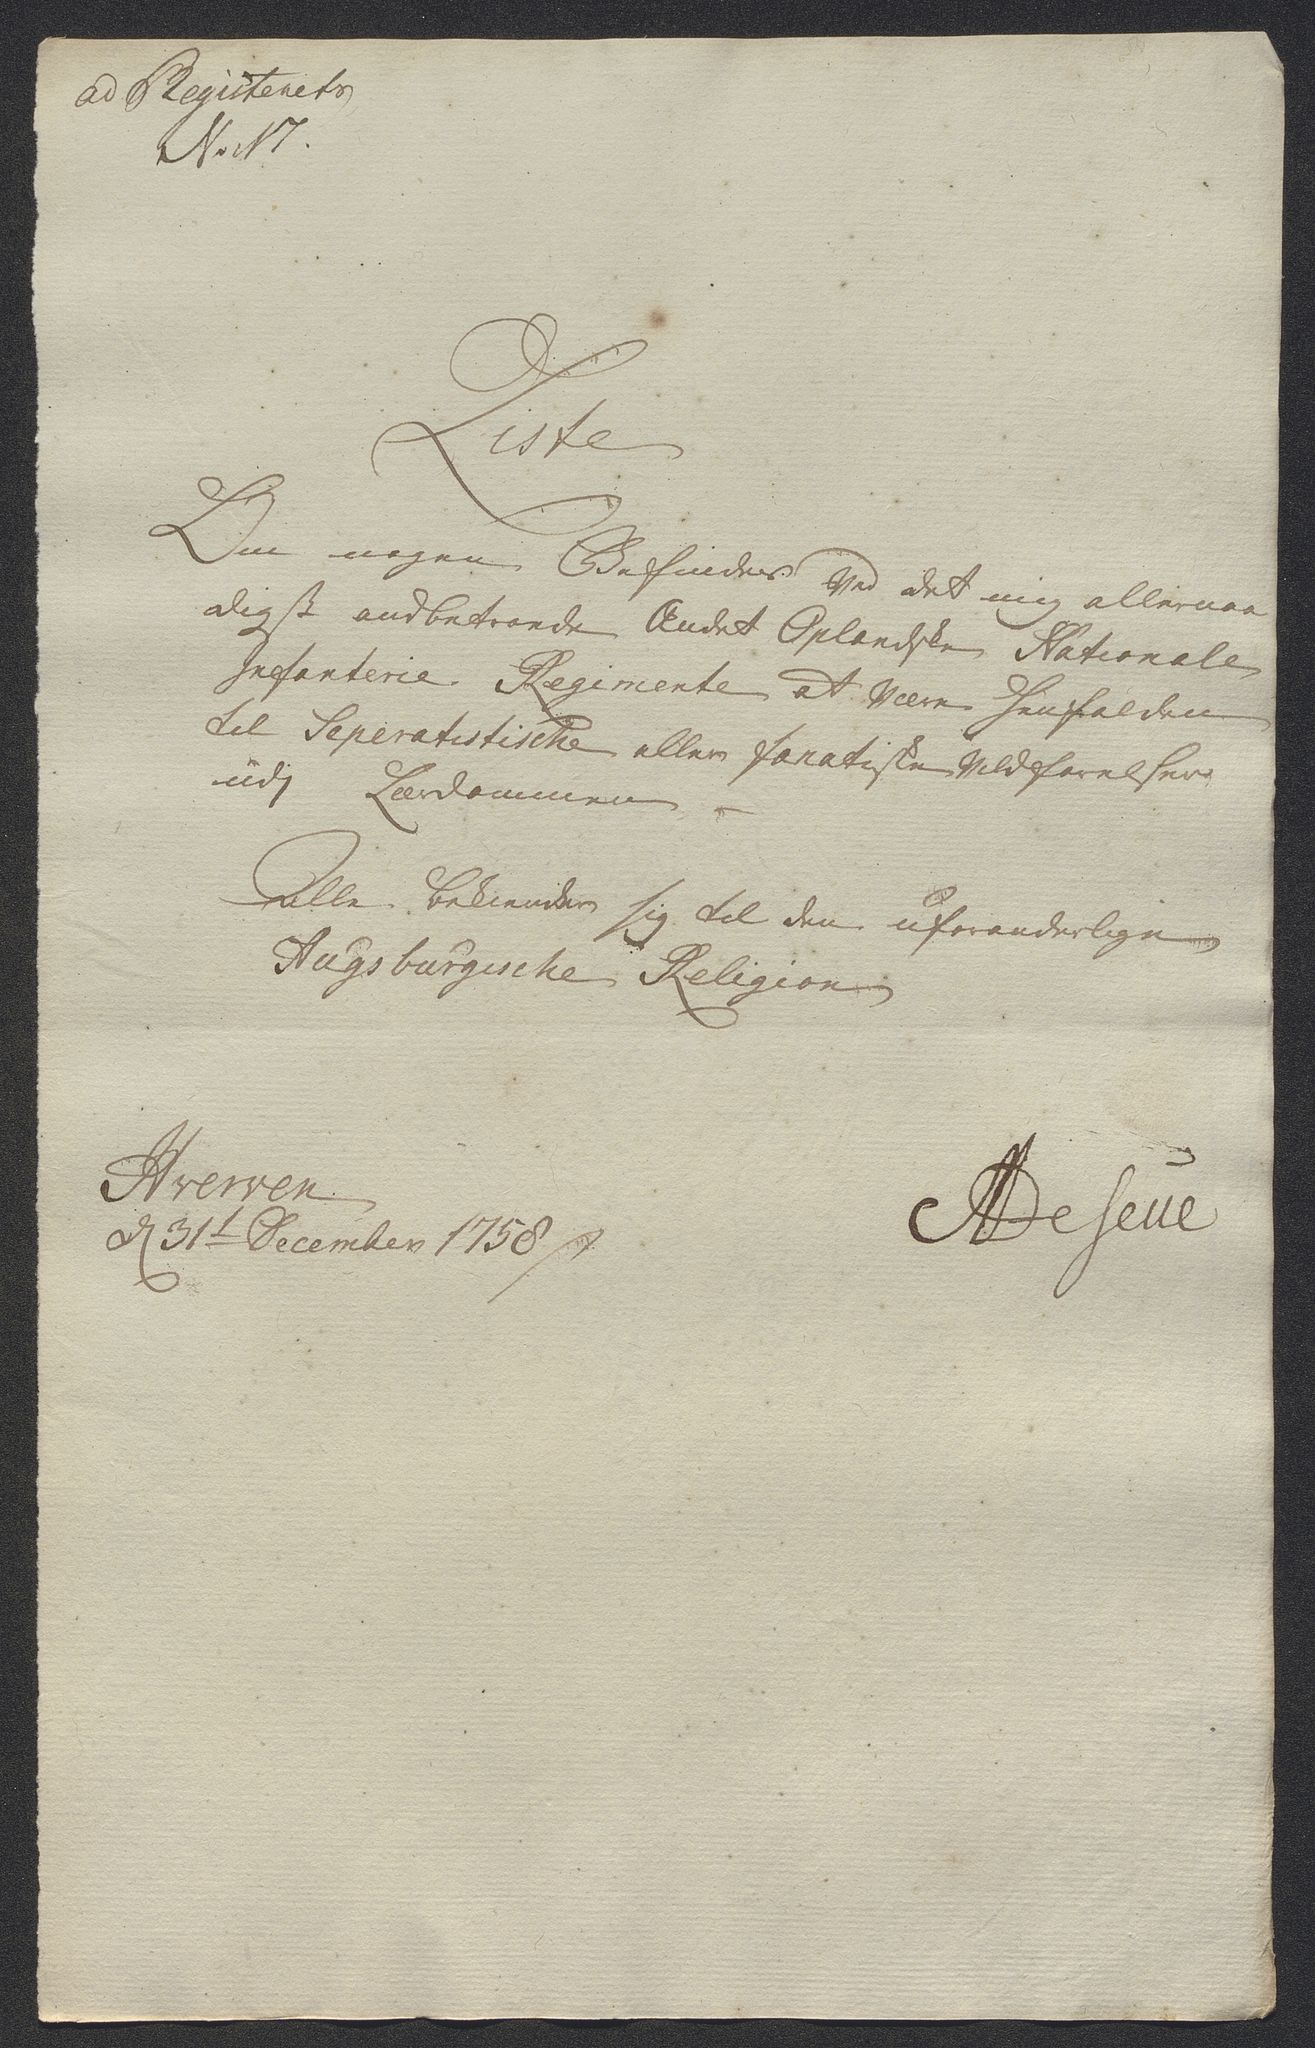 ad Registerets
No. 17.
Liste
Om nogen Befindes ved det mig allernaa
digst andbetroede Andet Oplandske Nationale
Infanterie Regimente at være henfalden
til Seperatistische eller fanatiske Vildfarelser
udj Lærdommen
alle bekiender sig til den uforanderlige
Augsburgische Religion
Hverven
d 31t December 1758
De Seue